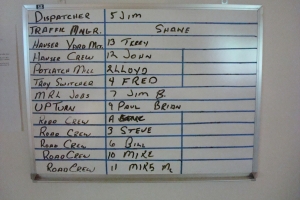 DISPATCHER 5 JIM
TRAFFIC MNGR. SHANE
HANSER YARD MGR. 13 TERRY
HANSER CREW 12 JOHN
POTLATCH MILL 2 LLOYD
TROY SWITCHER 4 FRED
MRL JOBS 7 JIM B.
UPTURN 9 PAUL BRIAN
ROAD CREW A
ROAD CREW 3 STEVE
ROAD CREW 6 BILL
ROAD CREW 10 MIKE
ROAD CREW 11 MIKE M